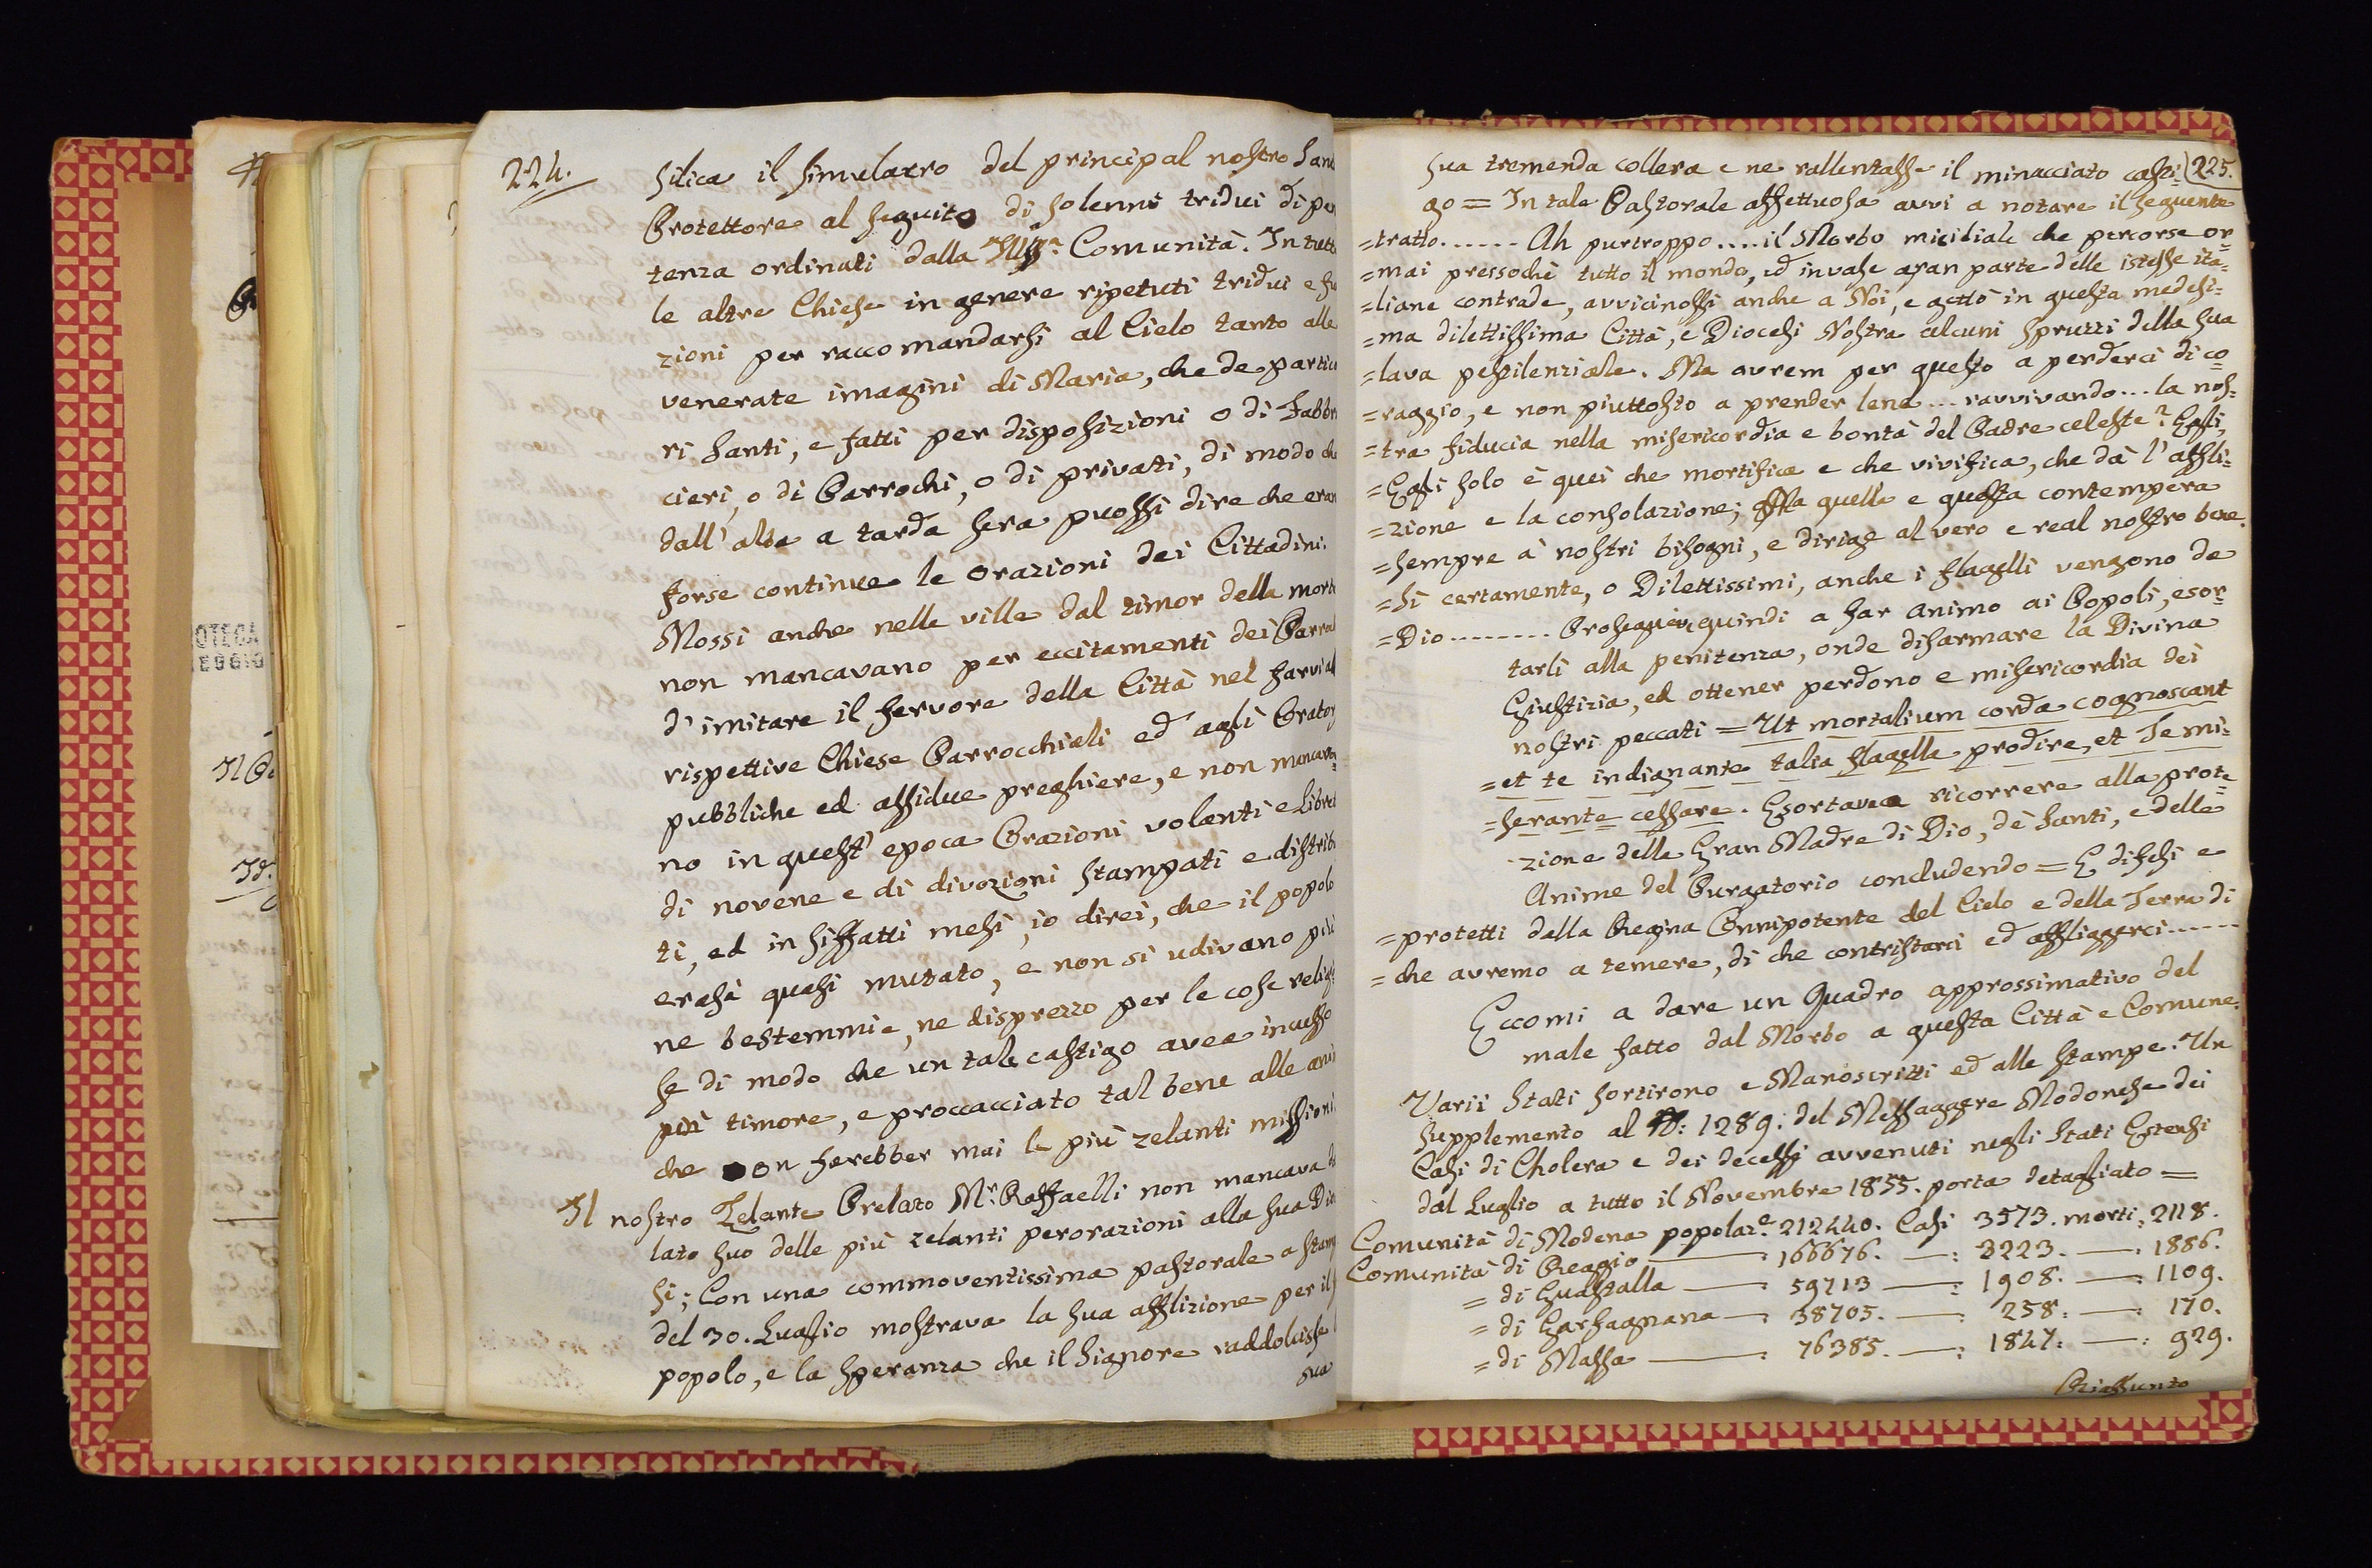 224.
silica il simulacro del principal nostro San
Protettore al seguito di solenni tridui di pen
tenza ordinati dalla Comunità. In tutte
le altre Chiese in genere ripetuti tridui e fu
zioni per raccomandarsi al Cielo tanto alle
venerate imagini di Maria, che de partico
ri Santi, e fatti per disposizioni o di Fabbri
cieri, o di Parrochi, o di privati, di modo che
dall'alba a tarda sera puossi dire che eran
forse continue le orazioni dei Cittadini.
Mossi anche nelle ville dal timor della morte
non mancavano per eccitamenti dei Parrochi
d'imitare il fervore della Città nel far via
rispettive Chiese Parrocchiali ed agli Orator
pubbliche ed assidue preghiere, e non mancava=
no in quest'epoca Orazioni volanti e Libret
di novene e di divozioni stampati e distribui
ti, ed in siffatti mesi, io direi, che il popolo
erasi quasi mutato, e non si udivano più
ne bestemmie, ne disprezzo per le cose religio
se di modo che un tale castigo avea incusso
più timore, e proccacciato tal bene alle ani
che non farebber mai le più zelanti missioni.
Il nostro Zelante Prelato Mr. Raffaelli non mancava
lato suo delle più zelanti perorazioni alla sua Dio
si; Con una commoventissima pastorale a stam
del 30. Luglio mostrava la sua afflizione per il
popolo, e la speranza che il Signore raddolcisse
sua
225.
sua tremenda collera e ne rallentasse il minacciato casti=
go = In tale Pastorale affettuosa avvi a notare il seguente
=tratto...... Ah purtroppo.... il Morbo micidiale che percorse or=
=mai pressochè tutto il mondo, ed invase gran parte delle istesse ita=
=liane contrade, avvicinossi anche a Noi, e gettò in questa medesi=
=ma dilettissima Città, e Diocesi Nostra alcuni spruzzi della sua
=lava pestilenziale. Ma avrem per questo a perderci di co=
=raggio, e non piuttosto a prender lena ... ravvivando ... la nos=
=tra fiducia nella misericordia e bontà del Padre celeste? Egli,
=Egli solo è quei che mortifica e che vivifica, che dà l'affli=
=zione e la consolazione; Ma quella e questa contempera
=sempre a' nostri bisogni, e dirige al vero e real nostro bene.
=Si certamente, o Dilettissimi, anche i flagelli vengono da
=Dio........ Proseguiva quindi a far animo ai Popoli, esor=
tarli alla penitenza, onde disarmare la Divina
Giustizia, ed ottener perdono e misericordia dei
nostri peccati = Ut mortalium corda cognoscant
=et te indignante talia flagella prodire, et Te mi=
=serante cessare. Esortava a ricorrere alla prote=
zione della Gran Madre di Dio, de' Santi, e delle
Anime del Purgatorio concludendo = E difesi e
=protetti dalla Regina Onnipotente del Cielo e della Terra di
=che avremo a temere, di che contristarci ed affliggerci......
Eccomi a dare un Quadro approssimativo del
male fatto dal Morbo a questa Città e Comune.
Varii Stati sortirono e Manoscritti ed alle stampe. Un
Supplemento al N: 1289: del Messaggere Modonese dei
Casi di Cholera e dei decessi avvenuti negli Stati Estensi
dal Luglio a tutto il Novembre 1855. porta detagliato =
Comunità di Modena popolaze. 212440. Casi 3573. morti: 2118.
Comunità di Reggio ——: 166676. —: 3223. —: 1886.
= di Guastalla —: 59713 —: 1908. —: 1109.
= di Garfagnana —: 38705. —: 258: —: 170.
= di Massa ——: 76385. —: 1847: —: 929.
Riassunto